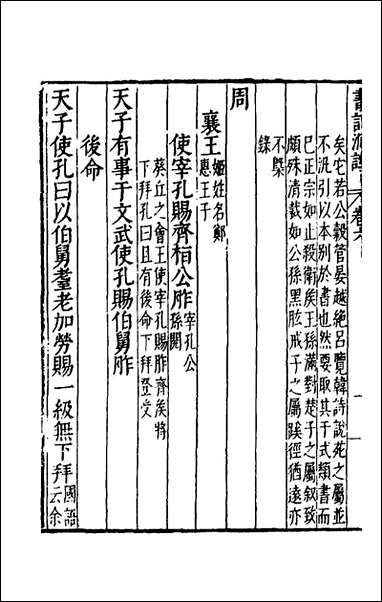 書記洞詮 卷六 一
矣它若公穀管晏越絕呂覽韓詩說苑之屬並
不泛引以本别於書也然要取其于式類書而
巳正宗如止殺衛矦王孫滿對楚子之屬叙致
頗殊清裁如公孫黑肱戒子之屬蹊徑猶遠亦
不槩
錄
周
襄王 姬姓名鄭
惠王子
使宰孔賜齊桓公胙 宰孔公
孫閱
葵丘之會王使宰孔賜胙齊矦將
下拜孔曰且有後命下拜登受
天子有事于文武使孔賜伯舅胙
後命
天子使孔曰以伯舅耋老加勞賜一級無下拜 國語
云余